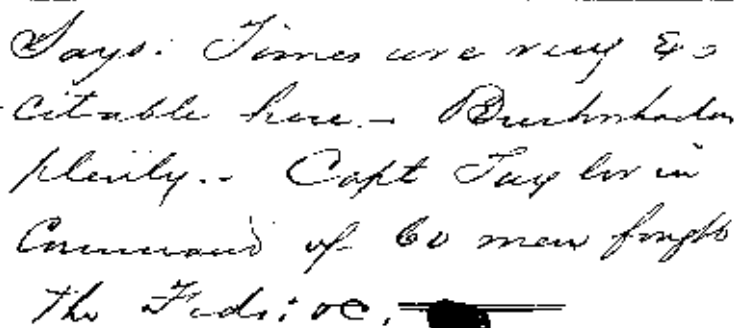 Says: Times are very Ex
citable here. - Bushwhackers
plenty. - Capt Taylor in
Command of 60 men fought
the Feds: &c.